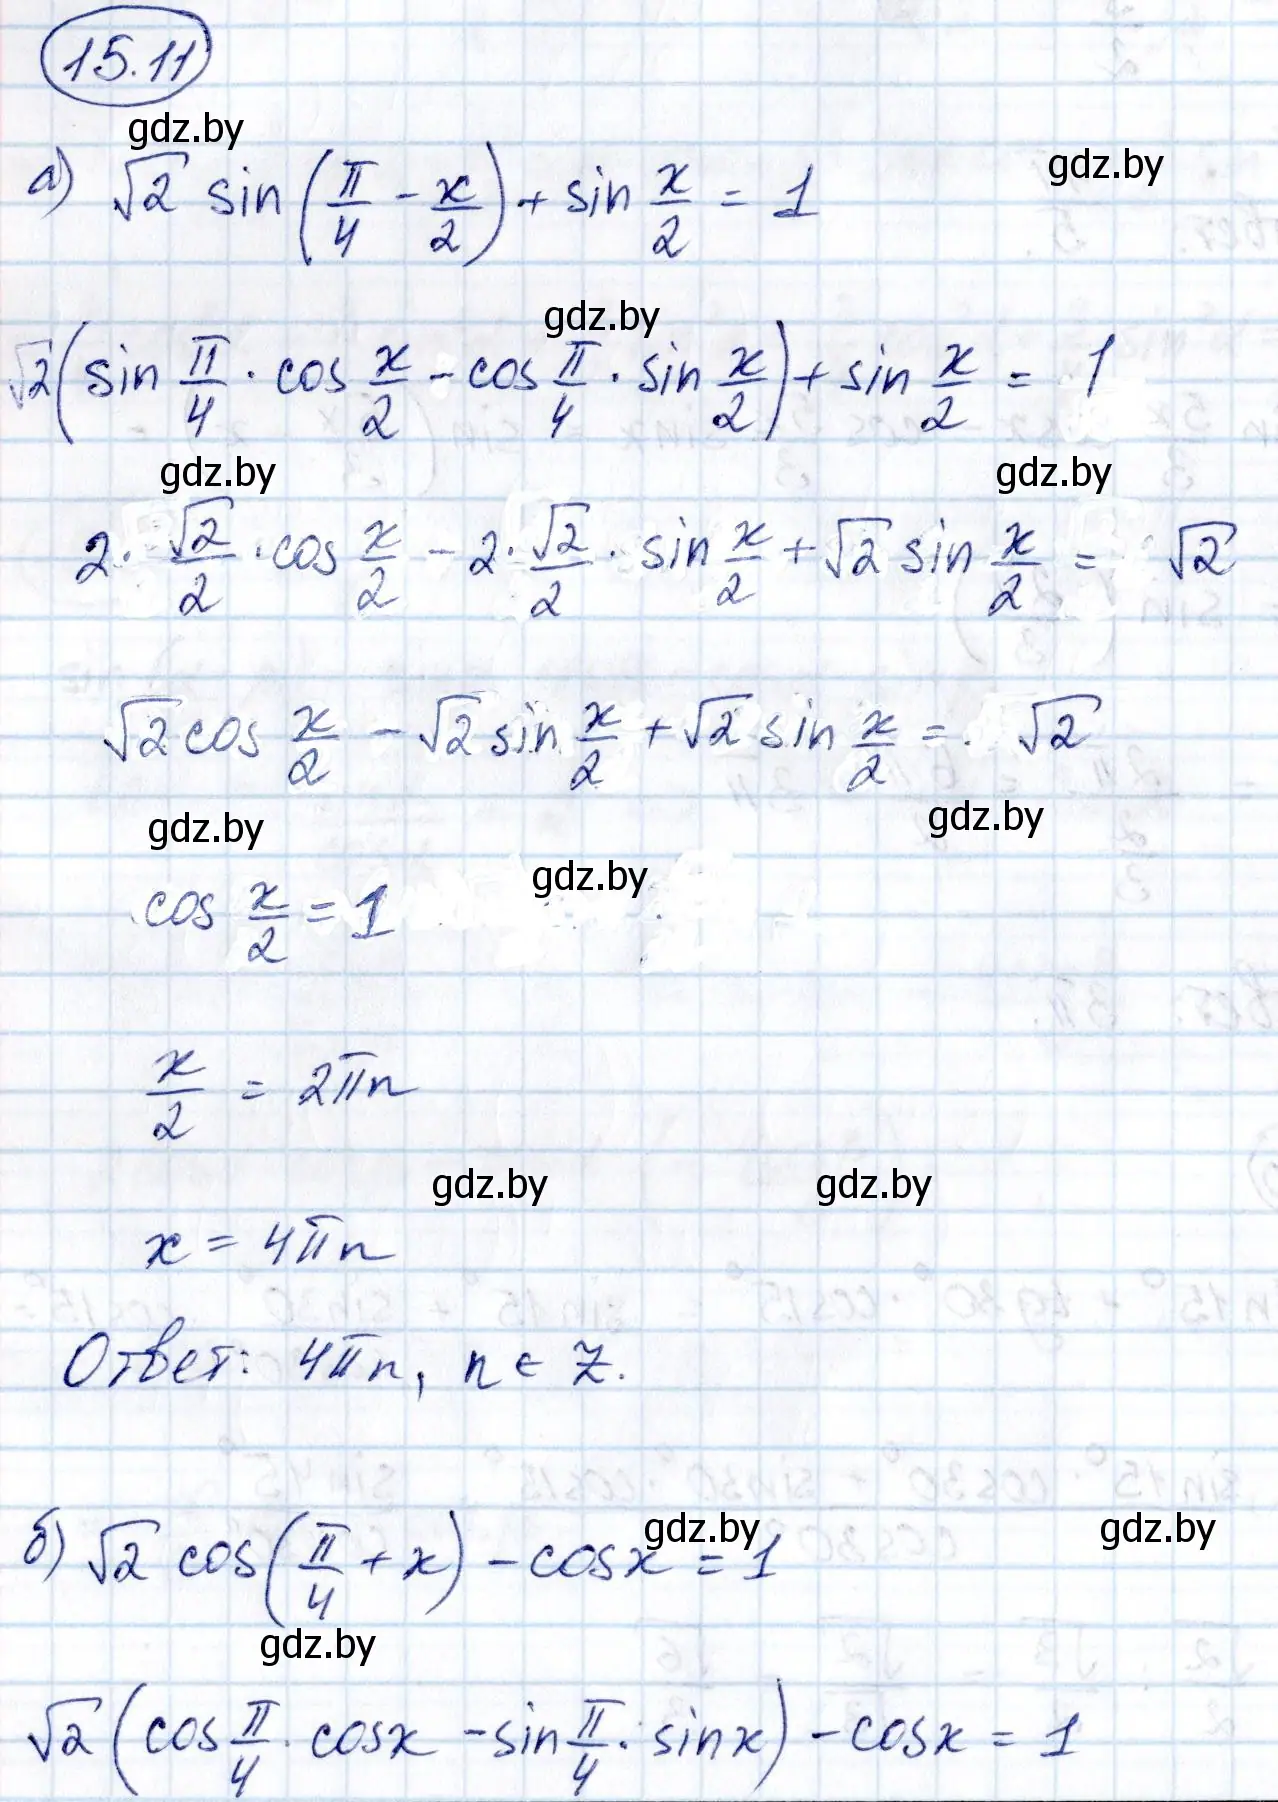 15.11
gdz.by
а) √2 sin(π/4 - x/2) + sin x/2 = 1
gdz.by
gdz.by
√2(sin π/4 · cos x/2 - cos π/4 · sin x/2) + sin x/2 = 1
gdz.by
gdz.by
2 · √2/2 · cos x/2 - 2 · √2/2 · sin x/2 + √2 sin x/2 = √2
√2 cos x/2 - √2 sin x/2 + √2 sin x/2 = √2
gdz.by
gdz.by
gdz.by
cos x/2 = 1
x/2 = 2πn
gdz.by
gdz.by
x = 4πn
Ответ: 4πn, n ∈ Z.
gdz.by
gdz.by
б) √2 cos(π/4 + x) - cosx = 1
gdz.by
√2 (cos π/4 · cosx - sin π/4 · sinx) - cosx = 1